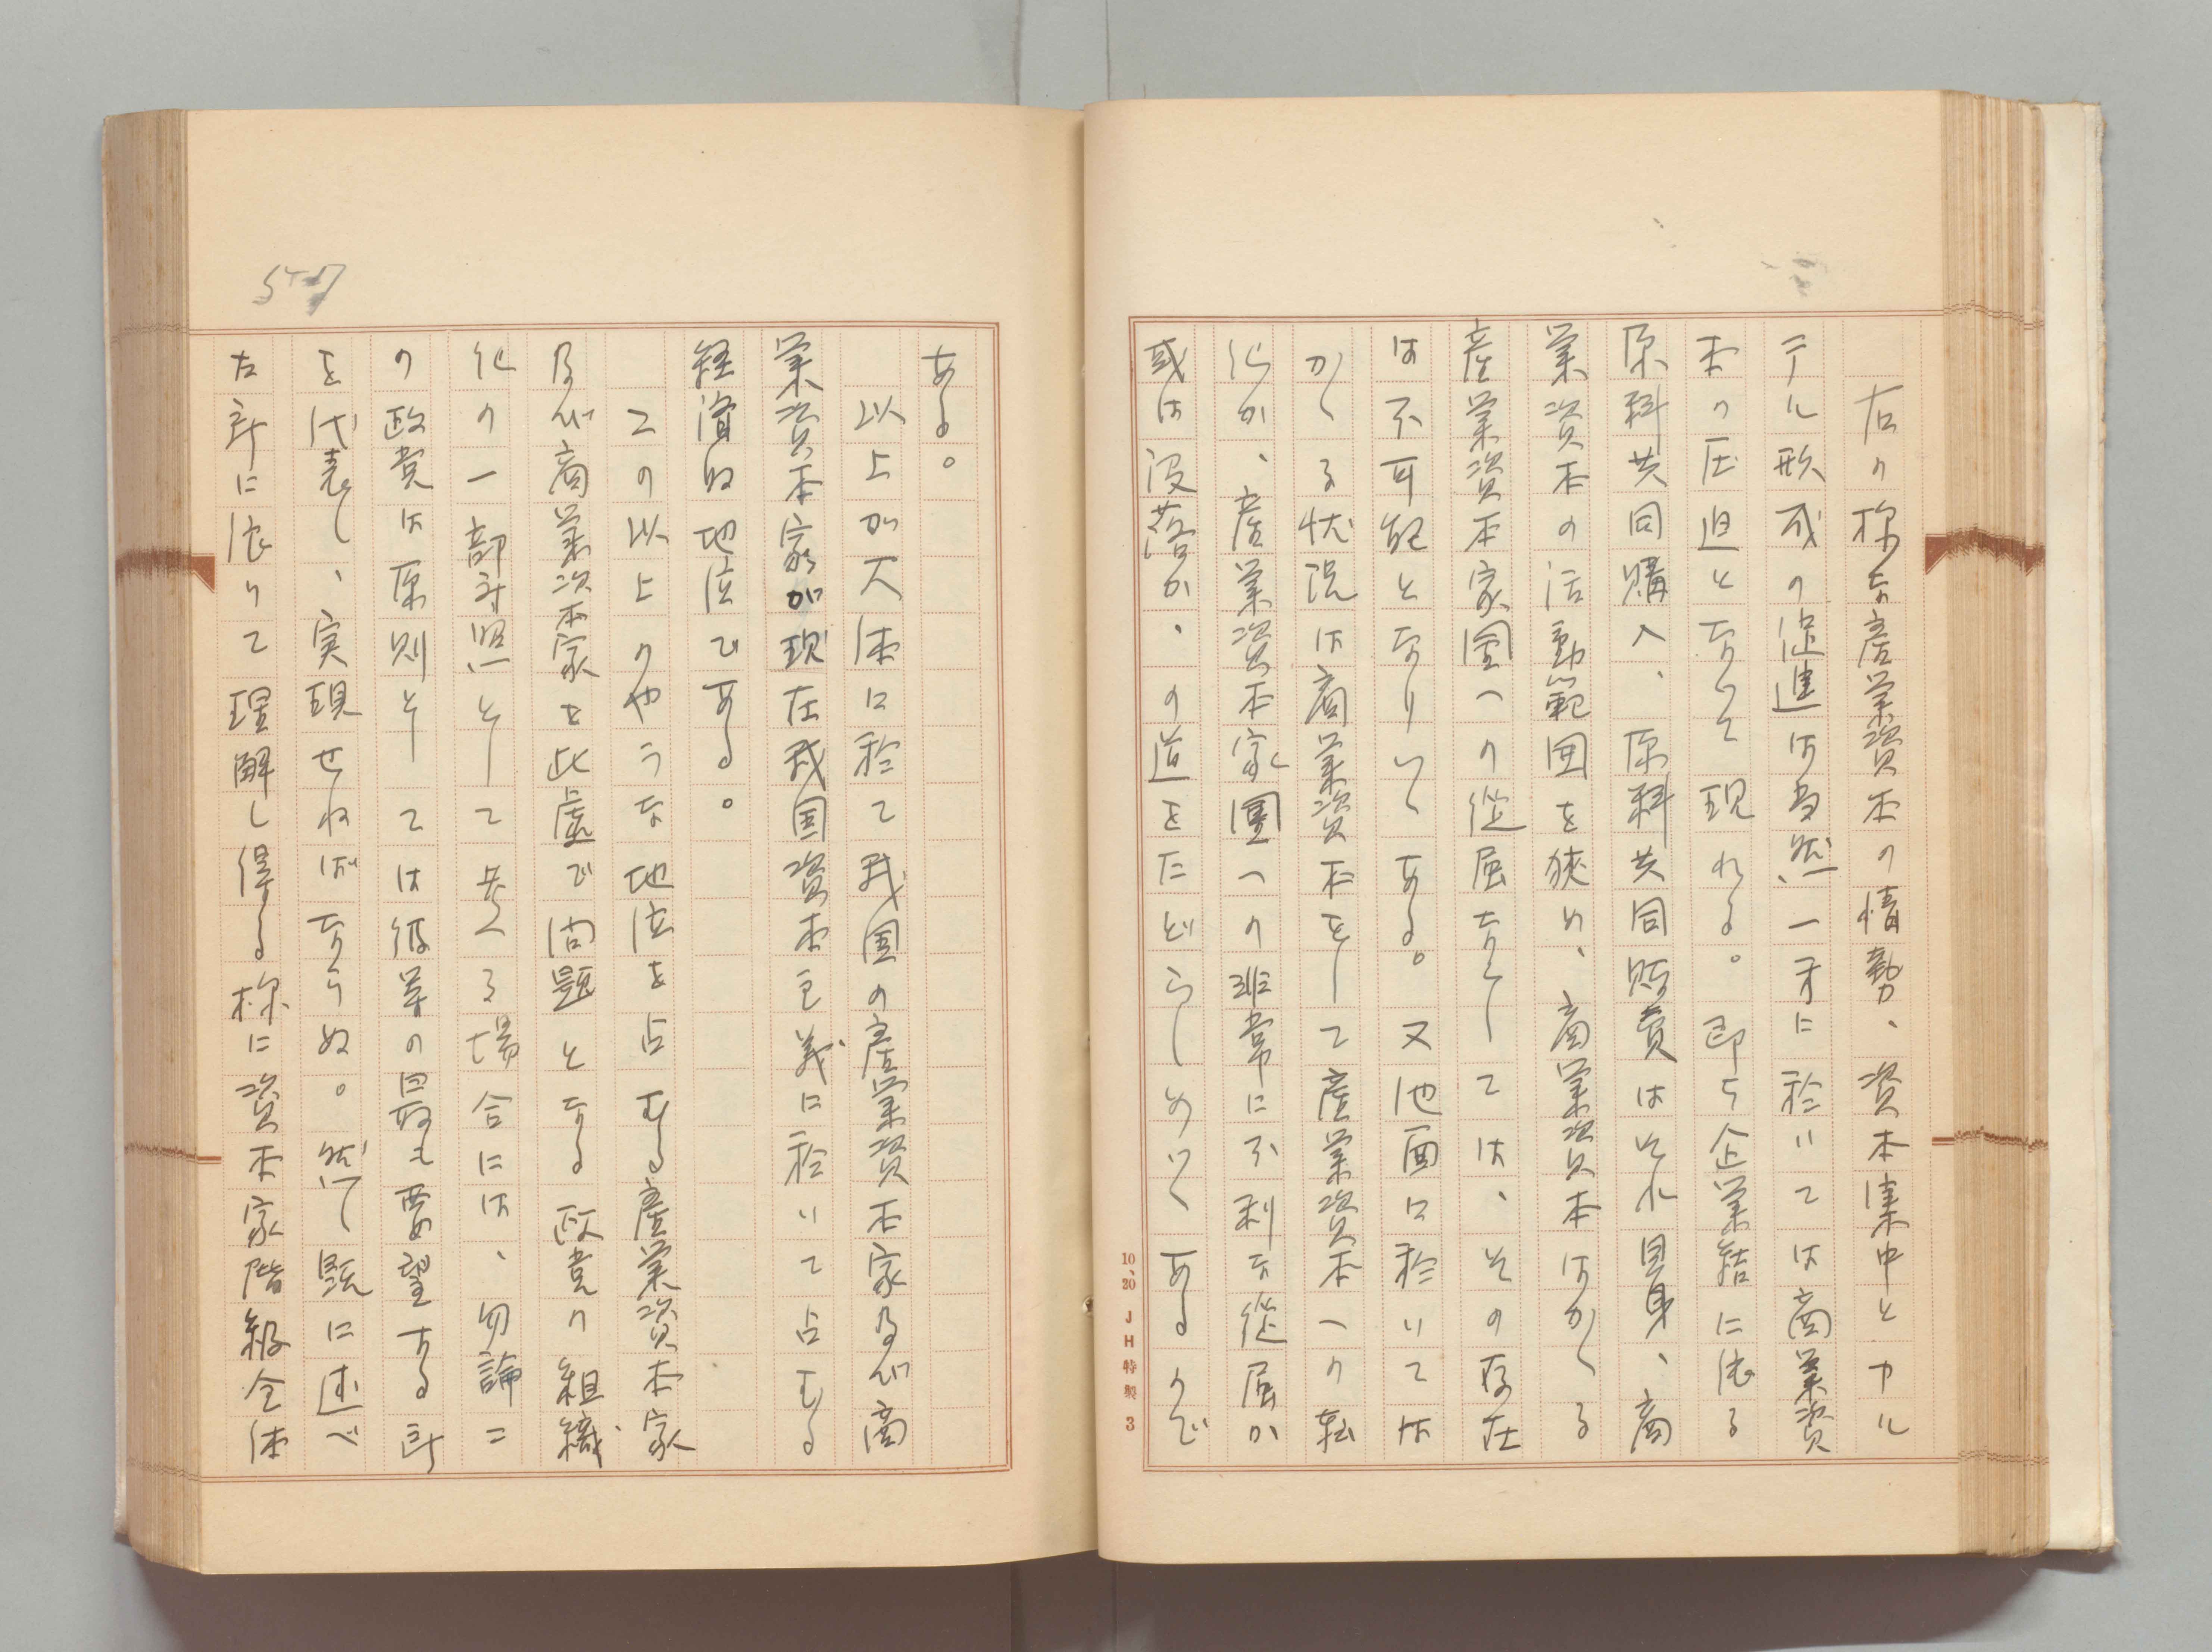 右の様な産業資本の情勢、資本集中とカル
テル形成の促進は当然一方に於いては商業資
本の圧迫となつて現れる。即ち企業結に依る
原料共同購入、原料共同販賣はそれ自身、商
業資本の活動範囲を狭め、商業資本はかくる
産業資本家團への從属なくしては、その存在
は不可能となりつくある。又他面に於いては
かくる状況は商業資本をして産業資本への転
化か、産業資本家團への非常に不利な從属か
或は没落か、の道をたどらしめつくあるので
10、20 JH特製 3
ある。
以上が大体に於て我国の産業資本家及び商
業資本家が現在我国資本主義に於いて占むる
経済的地位である。
この以上のやうな地位を占むる産業資本家
及び商業資本家を此處で問題となる政党の組織
化の一部対照として考へる場合には、勿論こ
の政党は原則としては彼等の最も要望する所
を代表し、実現せねばならぬ。然して既に述べ
た所に依りて理解し得る様に資本家階級全体